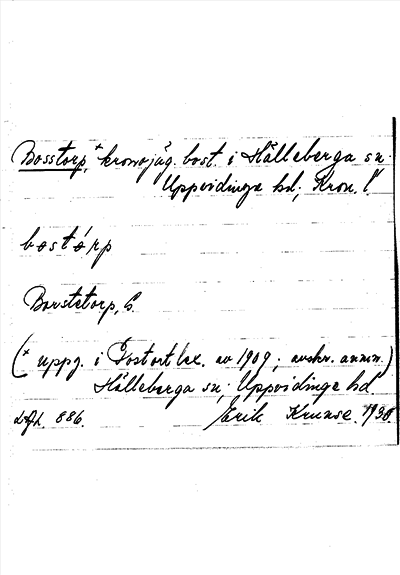 Bosstorp,* kronojäg. bost. i Hälleberga sn.
Uppvidinge hd, Kron. l.
bostórp
Borstetorp, G.
(* uppg. i Postort lex. av 1909; avskr. anm.)
Hälleberga sn, Uppvidinge hd
886. Erik Kruuse. 1930.